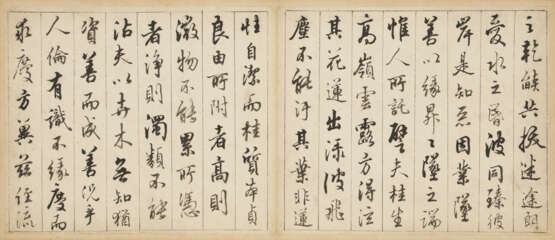 之乾燄共拔迷途朗
愛水之昏波同臻彼
岸是知惡因業墜
善以緣昇〻墜之端
惟人所託譬夫桂生
高嶺雲露方得泫
其花蓮出淥波飛
塵不能汙其葉非蓮
性自潔而桂質本貞
良由所附者高則
微物不能累所憑
者淨則濁類不能
沾夫以卉木無知猶
資善而成善況乎
人倫有識不緣慶而
求慶方冀茲經流